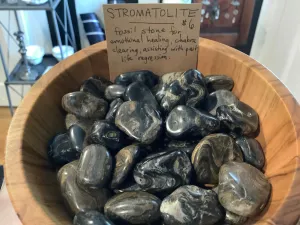 STROMATOLITE
$6
fossil stone for
emotional healing, chakra
clearing, assisting with past
life regression.